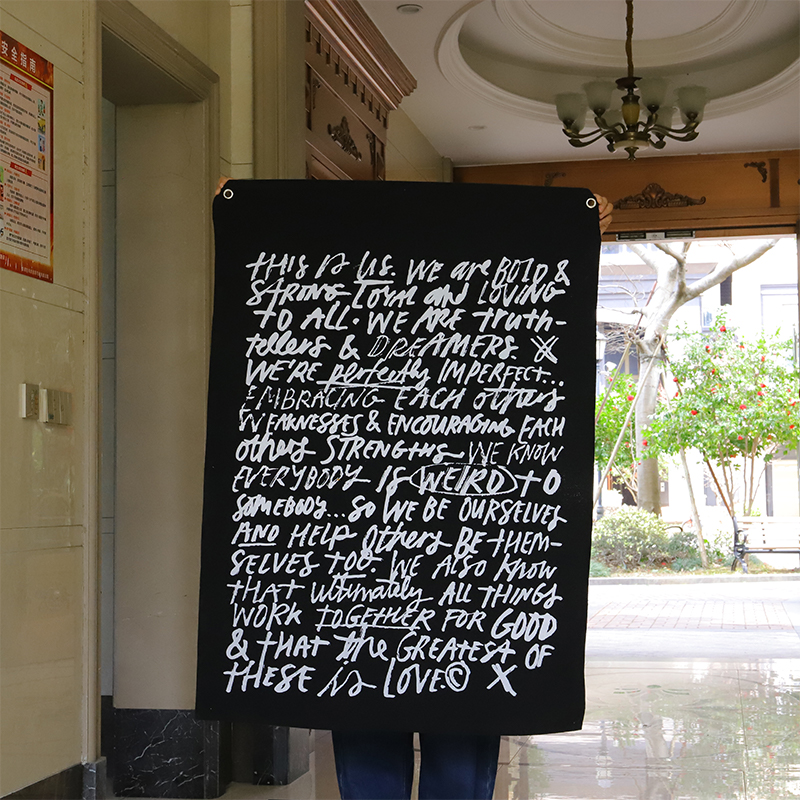 安全指南
THIS IS US. WE are BOLD &
STRONG LOYAL and LOVING
TO ALL. WE ARE truth-
tellers & DREAMERS. X
WE'RE perfectly IMPERFECT...
EMBRACING EACH others
WEAKNESSES & ENCOURAGING EACH
others STRENGTHS. WE KNOW
EVERYBODY IS WEIRD TO
SOMEBODY... SO WE BE OURSELVES
AND HELP Others BE THEM-
SELVES TOO. WE ALSO KNOW
THAT ultimately ALL THINGS
WORK TOGETHER FOR GOOD
& THAT the GREATEST OF
THESE is LOVE.© X